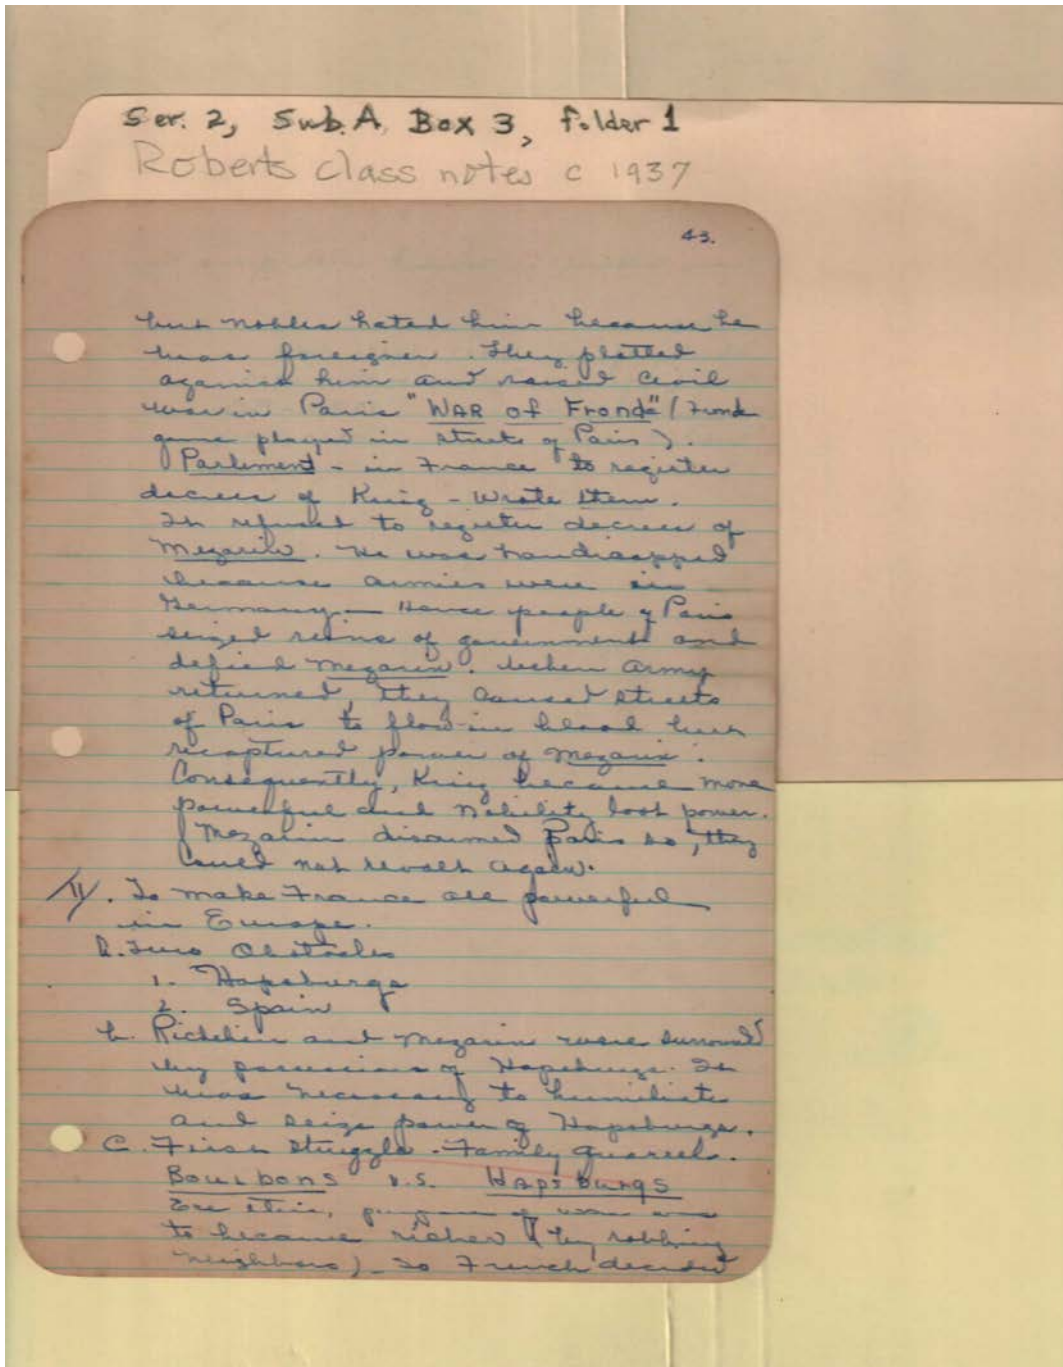 Ser. 2, Sub. A, Box 3, folder 1
Roberts class notes c 1937
43.
but nobles hated him because he
was foreigner. They plotted
against him and raised civil
war in Paris "WAR of Fronde" (
game played in streets of Paris).
Parliment - in France to register
decrees of King - wrote them.
It refused to register decrees of
Mezarin. He was handicapped
because armies were in
Germany - Hence people of Paris
seized reins of government and
defied Mezarin. When army
returned, they caused streets
of Paris to flow in blood but
recaptured power of Mezarin.
Consequently, King became more
powerful and Nobility lost power.
Mezarin disarmed Paris so, they
could not revolt again.
IV. To make France all powerful
in Europe.
a. Two Obstacles
1. Hapsburgs
2. Spain
b. Richelieu and Mezarin were surround
by possessions of Hapsburgs. It
was necessary to humiliate
and seize power of Hapsburgs.
C. First struggle - Family quarrel.
Bourbons v.s. Hapsburgs
purpose of war was
to become richer (by robbing
neighbors) - So French decided